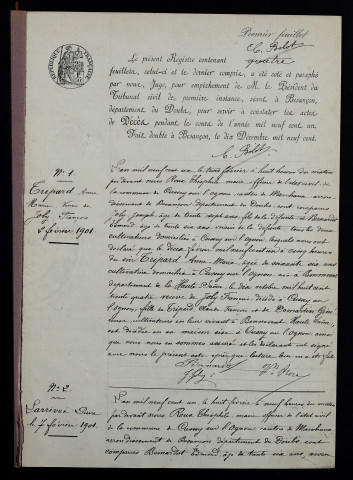 Premier feuillet
C. Belot
quatre
Le présent Registre contenant
feuillets, celui-ci et le dernier compris, a été coté et paraphé
par nous, Juge, pour empêchement de M. le Président du
Tribunal civil de première instance, séant à Besançon,
département du Doubs, pour servir à constater les actes
de Décès pendant le cours de l'année mil neuf cent un
Fait double à Besançon, le dix Décembre mil neuf cent.
C. Belot
RÉPUBLIQUE FRANÇAISE
N° 1
Trépard Anne
Marie veuve de
Joly François
2 février 1901
L'an mil neuf cent un le trois février à huit heures du matin
par devant nous Roux Théophile maire officier de l'état civil de
la commune de Cussey sur l'Ognon canton de Marchaux arron-
dissement de Besançon département du Doubs, sont comparus
Joly Joseph âgé de trente sept ans fils de la défunte et Bernardot
âgé de trente six ans voisin de la défunte tous les deux
cultivateurs domiciliés à Cussey sur l'Ognon lesquels nous ont
déclaré que le deux février mil neuf cent un à cinq heures
du soir Trépard Anne Marie âgée de soixante six ans
cultivatrice domiciliée à Cussey sur l'Ognon née à Bonnevent
département de la Haute Saône, le dix octobre mil huit cent
trente quatre veuve de Joly François décédé à Cussey sur
l'Ognon, fille de Trépard François et de
cultivateurs en leur vivant à Bonnevent Haute Saône,
est décédée en sa maison sise à Cussey sur l'Ognon ainsi
que nous nous en sommes assuré et les déclarants ont signé
avec nous le présent acte après que lecture leur en a été faite
Joly
Th. Roux
N° 2
Larrivée
le 7 février 1901.
L'an mil neuf cent un le huit février à neuf heures du matin
par devant nous Roux Théophile maire officier de l'état civil
de la commune de Cussey sur l'Ognon canton de Marchaux
arrondissement de Besançon département du Doubs, sont
comparus Bernardot âgé de trente six ans, voisin